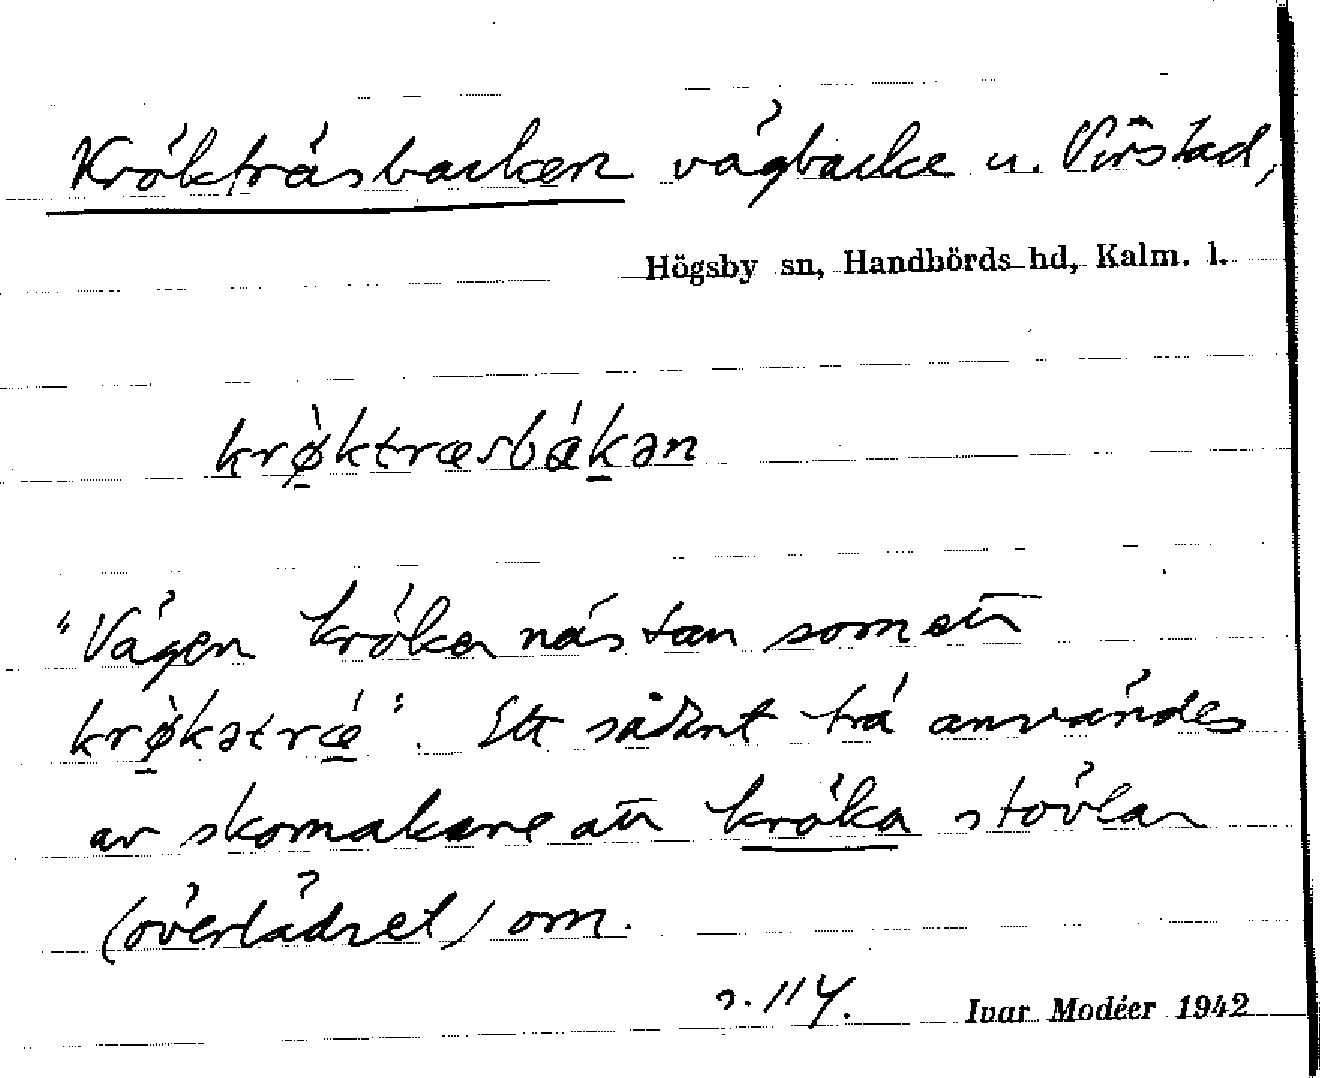 Krökträsbacken vägbacke u. Virstad,
Högsby sn, Handbörds hd, Kalm. l.
krø̀ktræsbákən
"Vägen kröker nästan som ett
krø̀kətrǽ". Ett sådant trä användes
av skomakare att kröka stövlar
(överlädret) om.
s. 114.
Ivar Modéer 1942